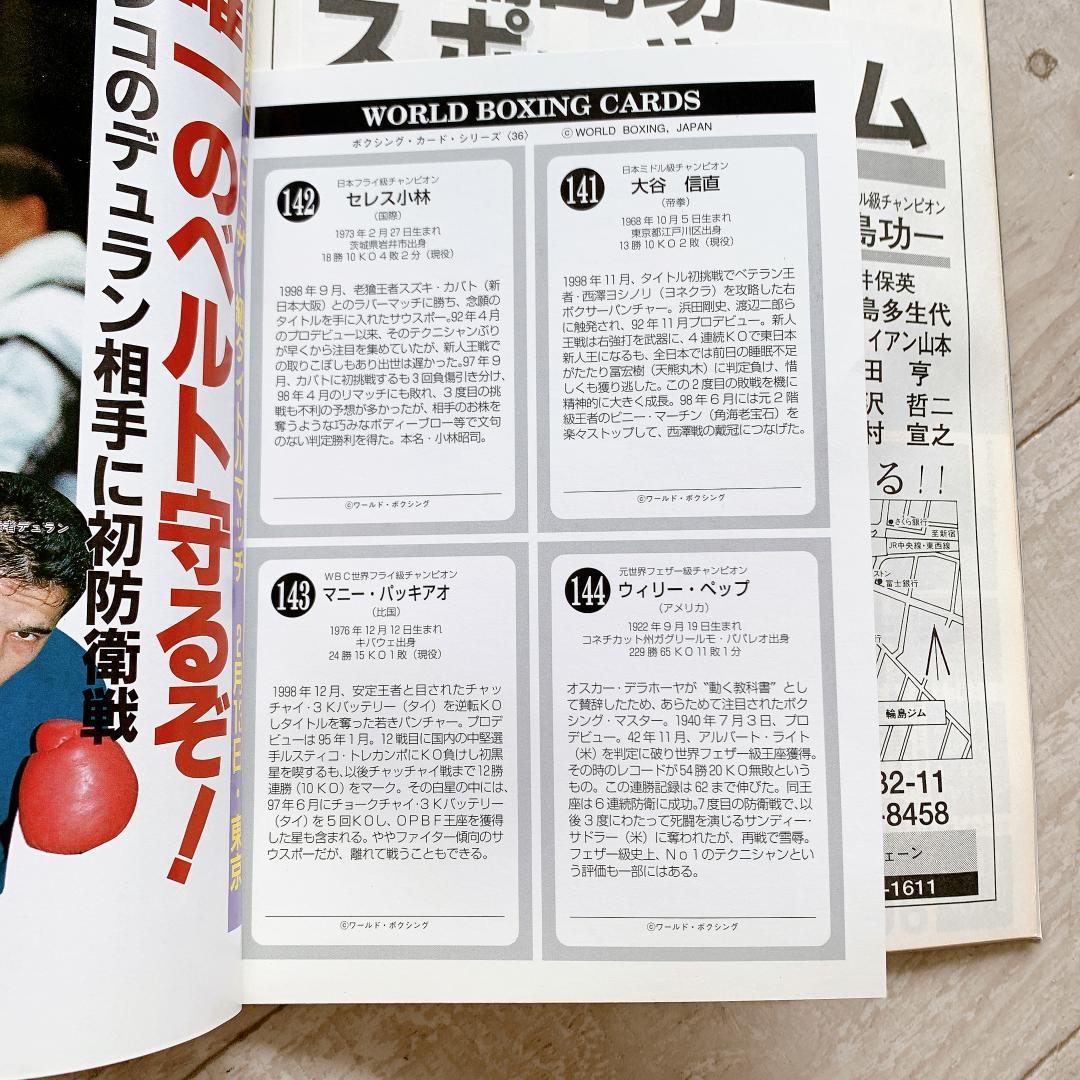 唯一のベルト守るぞ!
コのデュラン相手に初防衛戦
者デュラン
WORLD BOXING CARDS
ボクシング・カード・シリーズ〈36〉
© WORLD BOXING, JAPAN
142
日本フライ級チャンピオン
セレス小林
(国際)
1973年2月27日生まれ
茨城県岩井市出身
18勝10KO4敗2分(現役)
1998年9月、老獪王者スズキ・カバト(新
日本大阪)とのラバーマッチに勝ち、念願の
タイトルを手に入れたサウスポー。92年4月
のプロデビュー以来、そのテクニシャンぶり
が早くから注目を集めていたが、新人王戦で
の取りこぼしもあり出世は遅かった。97年9
月、カバトに初挑戦するも3回負傷引き分け、
98年4月のリマッチにも敗れ、3度目の挑
戦も不利の予想が多かったが、相手のお株を
奪うような巧みなボディーブロー等で文句
のない判定勝利を得た。本名・小林昭司。
©ワールド・ボクシング
141
日本ミドル級チャンピオン
大谷 信直
(帝拳)
1968年10月5日生まれ
東京都江戸川区出身
13勝10KO2敗(現役)
1998年11月、タイトル初挑戦でベテラン王
者・西澤ヨシノリ(ヨネクラ)を攻略した右
ボクサーパンチャー。浜田剛史、渡辺二郎ら
に触発され、92年11月プロデビュー。新人
王戦は右強打を武器に、4連続KOで東日本
新人王になるも、全日本では前日の睡眠不足
がたたり冨宏樹(天熊丸木)に判定負け、惜
しくも獲り逃した。この2度目の敗戦を機に
精神的に大きく成長。98年6月には元2階
級王者のビニー・マーチン(角海老宝石)を
楽々ストップして、西澤戦の戴冠につなげた。
©ワールド・ボクシング
143
WBC世界フライ級チャンピオン
マニー・パッキアオ
(比国)
1976年12月12日生まれ
キバウェ出身
24勝15KO1敗(現役)
1998年12月、安定王者と目されたチャッ
チャイ・3Kバッテリー(タイ)を逆転KO
しタイトルを奪った若きパンチャー。プロデ
ビューは95年1月。12戦目に国内の中堅選
手ルスティコ・トレカンポにKO負けし初黒
星を喫するも、以後チャッチャイ戦まで12勝
連勝(10KO)をマーク。その白星の中には、
97年6月にチョークチャイ・3Kバッテリー
(タイ)を5回KOし、OPBF王座を獲得
した星も含まれる。ややファイター傾向のサ
ウスポーだが、離れて戦うこともできる。
©ワールド・ボクシング
144
元世界フェザー級チャンピオン
ウィリー・ペップ
(アメリカ)
1922年9月19日生まれ
コネチカット州ガグリールモ・パパレオ出身
229勝65KO11敗1分
オスカー・デラホーヤが“動く教科書”とし
て賛辞したため、あらためて注目されたボク
シング・マスター。1940年7月3日、プロ
デビュー。42年11月、アルバート・ライト
(米)を判定に破り世界フェザー級王座獲得。
その時のレコードが54勝20KO無敗という
もの。この連勝記録は62まで伸びた。同王
座は6連続防衛に成功。7度目の防衛戦で、以
後3度にわたって死闘を演じるサンディー・
サドラー(米)に奪われたが、再戦で雪辱。
フェザー級史上、No1のテクニシャンとい
う評価も一部にはある。
©ワールド・ボクシング
ム
ル級チャンピオン
島功一
井保英
島多生代
イアン山本
田 亨
沢 哲二
村 宣之
る!!
さくら銀行
至新宿
JR中央線・東西線
富士銀行
輪島ジム
32-11
-8458
ェーン
-1611